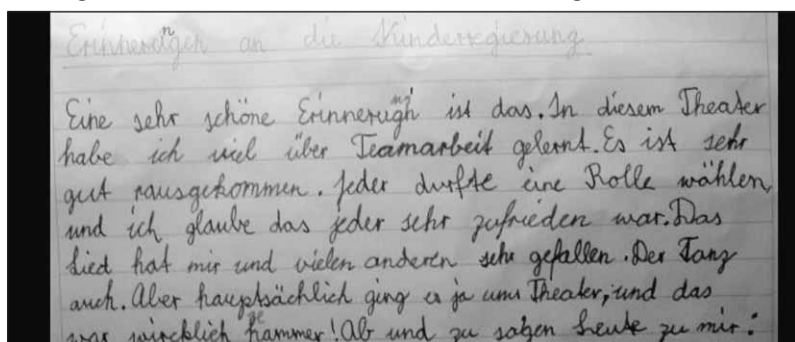 Erinnerungen an die Kinderregierung
Eine sehr schöne Erinnerugn ist das. In diesem Theater
habe ich viel über Teamarbeit gelernt. Es ist sehr
gut rausgekommen. Jeder durfte eine Rolle wählen,
und ich glaube das jeder sehr zufrieden war. Das
Lied hat mir und vielen anderen sehr gefallen. Der Tanz
auch. Aber hauptsächlich ging es ja ums Theater, und das
war wircklich hammer! Ab und zu sagen Leute zu mir: